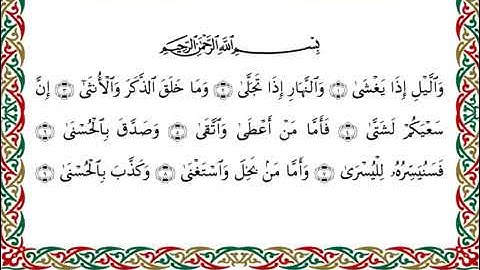 بِسْمِ اللَّهِ الرَّحْمَٰنِ الرَّحِيمِ
وَٱلَّيْلِ إِذَا يَغْشَىٰ ۝١ وَٱلنَّهَارِ إِذَا تَجَلَّىٰ ۝٢ وَمَا خَلَقَ ٱلذَّكَرَ وَٱلْأُنثَىٰٓ ۝٣ إِنَّ
سَعْيَكُمْ لَشَتَّىٰ ۝٤ فَأَمَّا مَنْ أَعْطَىٰ وَٱتَّقَىٰ ۝٥ وَصَدَّقَ بِٱلْحُسْنَىٰ ۝٦
فَسَنُيَسِّرُهُۥ لِلْيُسْرَىٰ ۝٧ وَأَمَّا مَنۢ بَخِلَ وَٱسْتَغْنَىٰ ۝٨ وَكَذَّبَ بِٱلْحُسْنَىٰ ۝٩